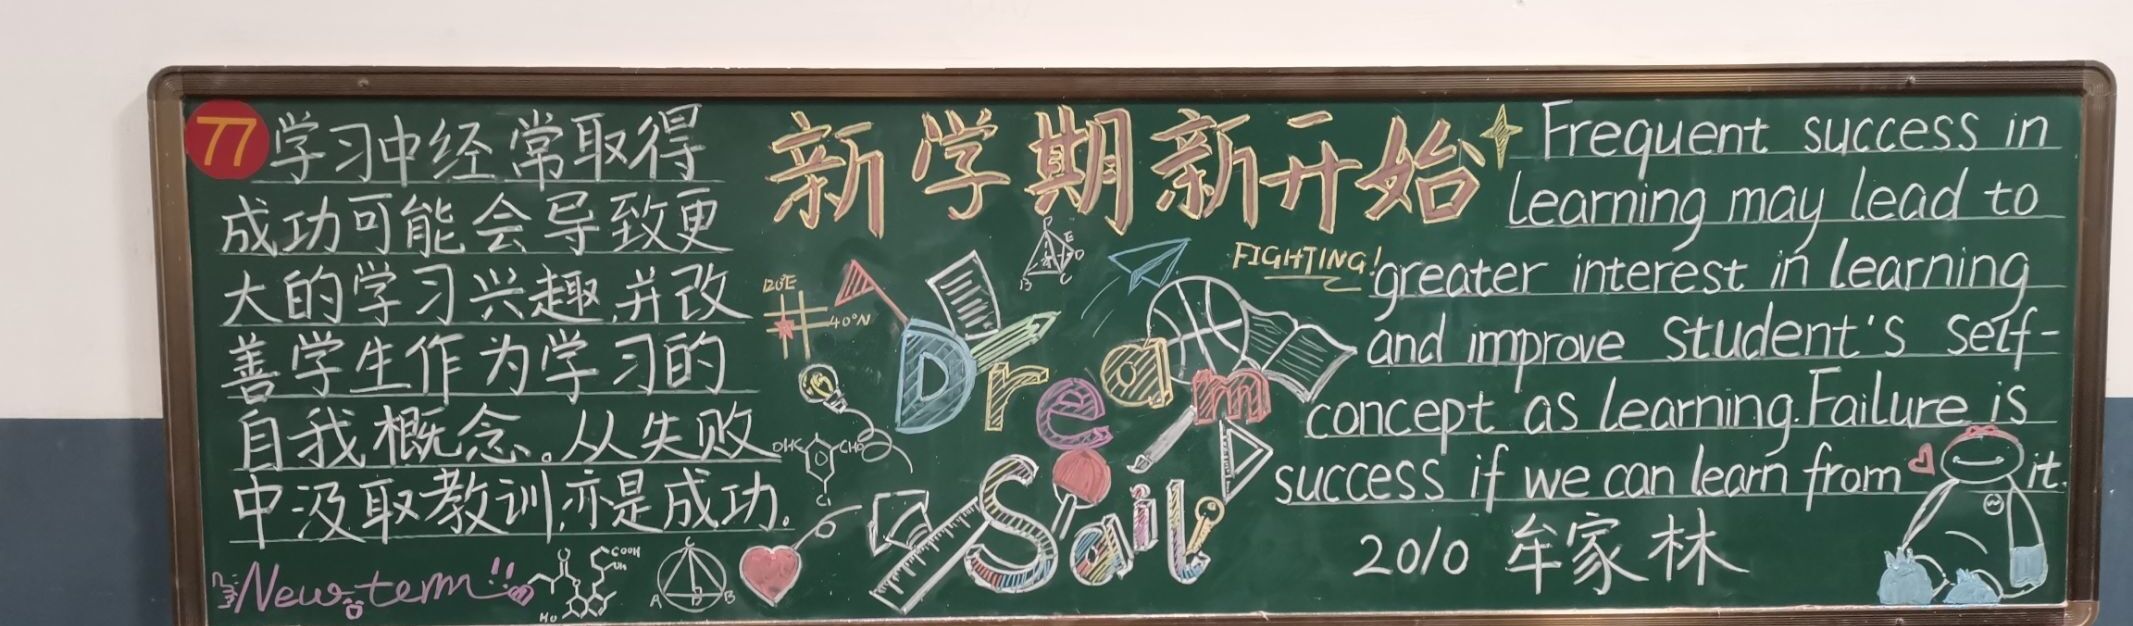 77
学习中经常取得
成功可能会导致更
大的学习兴趣,并改
善学生作为学习的
自我概念。从失败
中汲取教训,亦是成功。
New term!!
新学期新开始
FIGHTING!
120°E
40°N
Dream
Sail
OHC
CHO
Cl
COOH
HO
A
B
C
D
Frequent success in
learning may lead to
greater interest in learning
and improve student's self-
concept as learning.Failure is
success if we can learn from it.
2010 牟家林